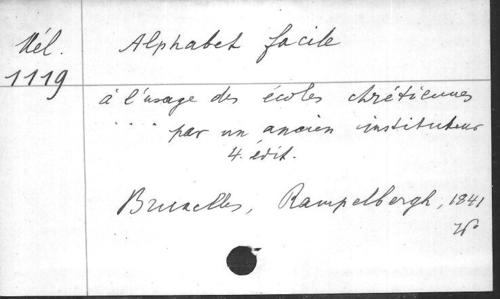 Vél. Alphabet facile
1119
à l'usage des écoles chrétiennes
.... par un ancien instituteur
4. édit.
Bruxelles, Rampelbergh, 1841